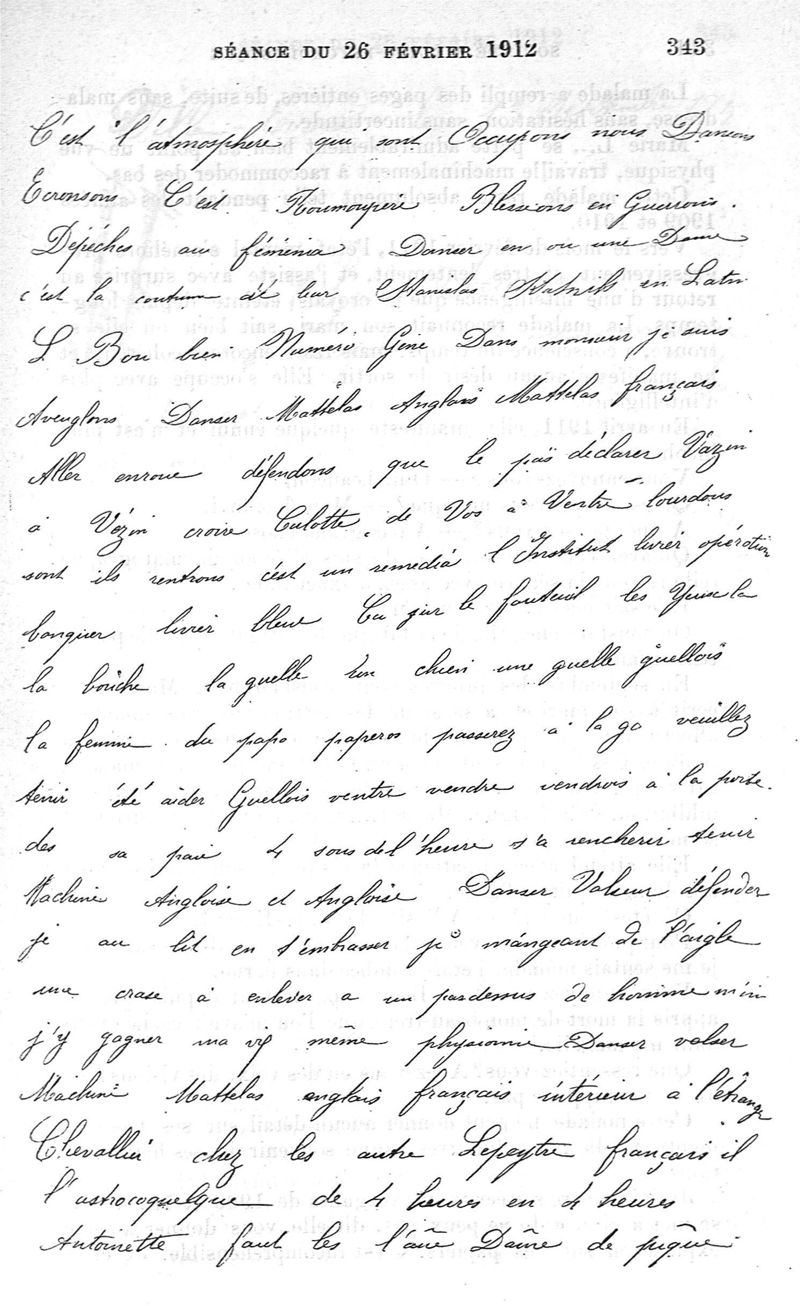 SÉANCE DU 26 FÉVRIER 1912 343
C'est l'atmosphère que sont Occupons nous Dansons
Ecronsons C'est Roumoupère Blessions en Guerrons.
Dépéches au féminia Danser en ou une Dame
c'est la coutume d'é leur Manuelas en Latin
L Bon bien Numero Gene Dans monsieur je suis
Aveuglons Danser Mattelas Anglais Mattelas français
Aller enroue défendons que le pas déclarer Vazin
a Vézin croire Culotte de Vos a Ventre lourdous
sont ils rentrons c'est un remedia l Institut livrer opération
banquer livrer bleue Ca sur le fauteuil les Yeux la
la bouche la guelle un chien une guelle guellois
la femme du papo paperos passerez a la ga veuillez
tenir été aider Guellois ventre vendre vendrois à la porte.
des sa paie 4 sous del'heure s'a rencherir tenir
Machine Angloise et Angloise Danser Valseur défender
je au lit en t'embrasser je mangeant de l'aigle
une crase à enlever a un pardessus de homme
j'y gagner ma meme physionmie Danser valser
Machine Mattelas anglais français interieur à l'étrange
Chevallier chez les autre Lepeytre français il
l'astrocoquelque de 4 heures en 4 heures
Antoinette faut les l'aûe Daîne de pique